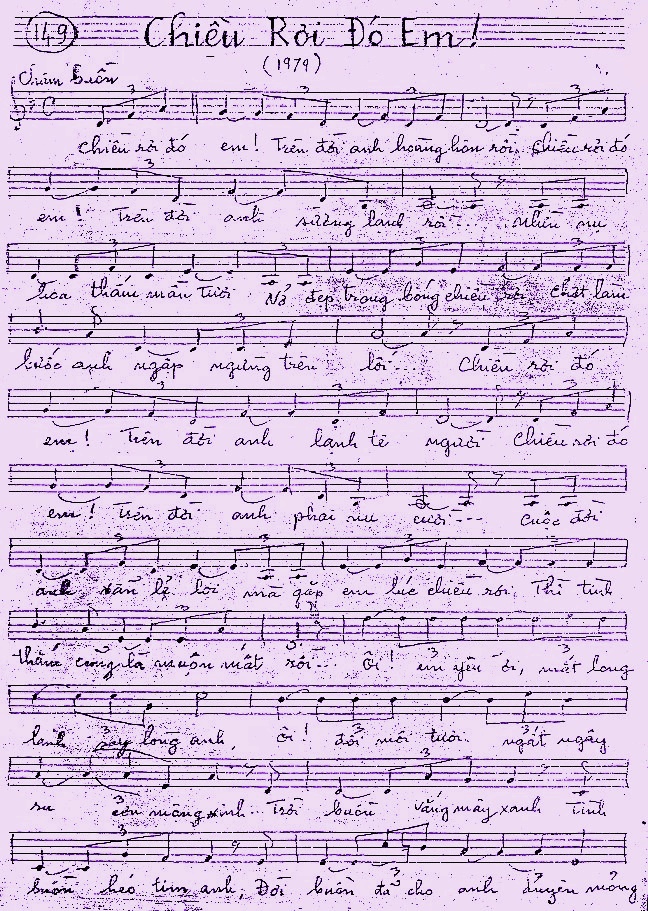 149 Chiều Rơi Đó Em!
(1979)
Chậm buồn
Chiều rơi đó em! Trên đời anh hoàng hôn rồi. Chiều rơi đó
em! Trên đời anh sương lạnh rơi... nhìn nụ
hoa thắm mãn tươi Nở đẹp trong bóng chiều rơi Chợt làm
bước anh ngập ngừng trên lối... Chiều rơi đó
em! Trên đời anh lạnh tê người Chiều rơi đó
em! Trên đời anh phai nụ cười... Cuộc đời
anh lẻ loi mà gặp em lúc chiều rơi. Thì tình
thắm cũng là muộn mất rồi... Ôi! em yêu ơi, mắt long
lanh say lòng anh, Ôi! đôi môi tươi. ngất ngây
ru cơn mộng xinh... Trời buồn vắng mây xanh tình
buồn héo tim anh, Đời buồn đã cho anh duyên mỏng